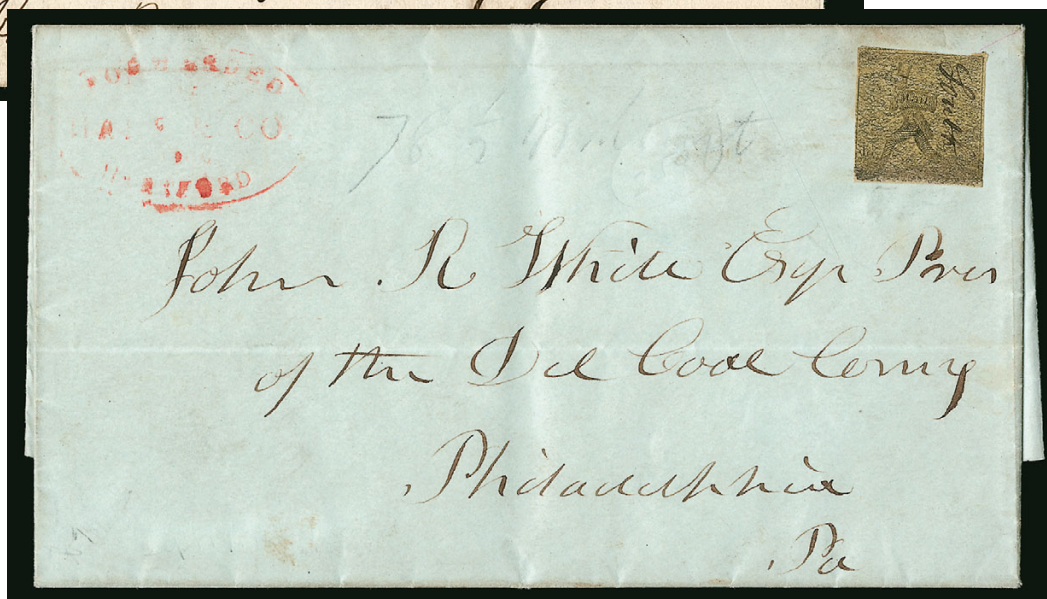 FORWARDED
HALE & CO.
HARTFORD
John R White Esqr Pres
of the Del Coal Comy
Philadelphia
Pa